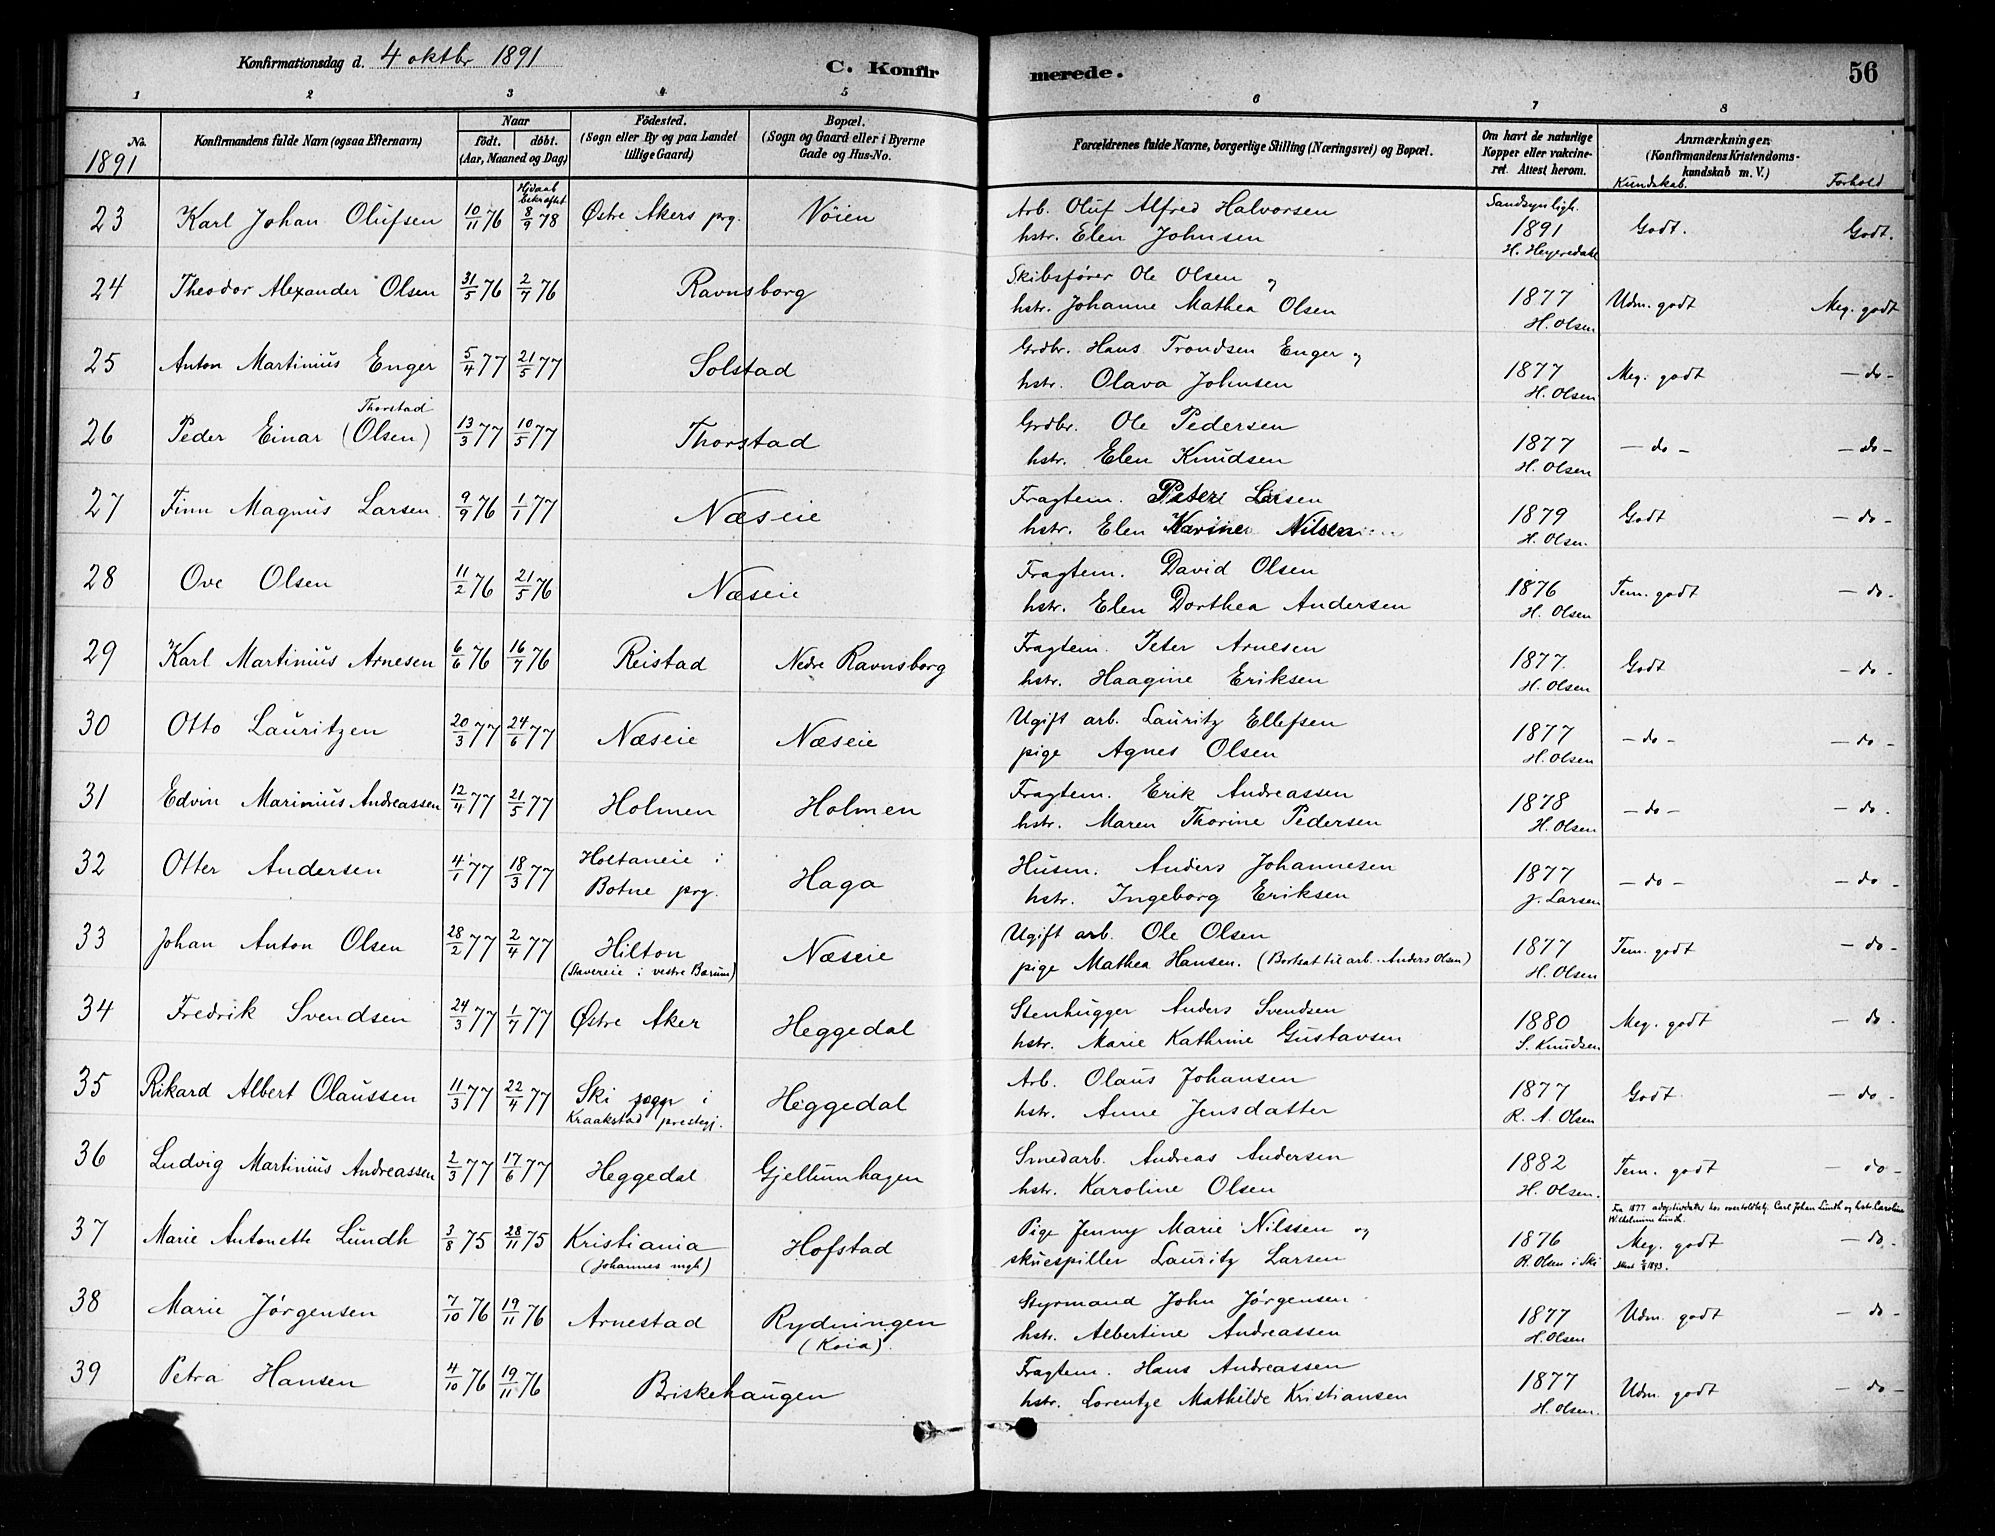 Konfirmationsdag d. 4 oktbr 1891
C. Konfirmerede.
56
1 2 3 4 5 6 7 8
No. 1891
Konfirmandens fulde Navn (ogsaa Efternavn)
Naar
født. døbt.
(Aar, Maaned og Dag)
Födested.
(Sogn eller By og paa Landet
tillige Gaard)
Bopæl.
(Sogn og Gaard eller i Byerne
Gade og Hus-No.
Forældrenes fulde Navne, borgerlige Stilling (Næringsvei) og Bopæl.
Om havt de naturlige
Kopper eller vakcine-
ret. Attest herom.
Anmærkninger.
(Konfirmandens Kristendoms-
kundskab m. V.)
Kundskab. Forhold
23 Karl Johan Olufsen 10/11 76 bekræftet 8/9 78 Østre Akers prg. Vöien Arb. Oluf Alfred Halvorsen Sandsynligh.
hstr. Elen Johnsen 1891 Godt. Godt.
24 Theodor Alexander Olsen 31/5 76 2/7 76 Ravnsborg Skibsfører Ole Olsen og
hstr. Johanne Mathea Olsen 1877 H. Olsen Udm. godt Meg. godt
25 Anton Martinius Enger 5/4 77 21/5 77 Solstad Grdbr. Hans Trondsen Enger og
hstr. Olava Johnsen 1877 H. Olsen Meg. godt - do -
26 Peder Einar (Olsen) Thorstad 13/3 77 10/5 77 Thorstad Grdbr. Ole Pedersen
hstr. Elen Knudsen 1877 H. Olsen - do - - do -
27 Finn Magnus Larsen 9/9 76 1/1 77 Næseie Fragtem. Peter Larsen
hstr. Elen Karine Nilsen 1879 H. Olsen. Godt - do -
28 Ove Olsen 11/2 76 21/5 76 Næseie Fragtem. David Olsen
hstr. Elen Dorthea Andersen 1876 H. Olsen Tem. godt - do -
29 Karl Martinius Arnesen 6/6 76 16/7 76 Reistad Nedre Ravnsborg Fragtem. Peter Arnesen
hstr. Haagine Eriksen 1877. H. Olsen Godt - do -
30 Otto Lauritzen 20/3 77 24/6 77 Næseie Næseie Ugift arb. Lauritz Ellefsen
pige Agnes Olsen 1877 H. Olsen - do - - do -
31 Edvin Marinius Andreassen 12/4 77 21/5 77 Holmen Holmen Fragtem. Erik Andreassen
hstr. Maren Thorine Pedersen 1878 H. Olsen - do - - do -
32 Otter Andersen 4/1 77 18/3 77 Holtaneie i Botne prg. Haga Husm. Anders Johannesen
hstr. Ingeborg Eriksen 1877 J. Larsen - do - - do -
33 Johan Anton Olsen 28/2 77 2/4 77 Hilton (Stavereie i vestre Bærum) Næseie Ugift arb. Ole Olsen
pige Mathea Hansen. (Bortsat til arb. Anders Olsen) 1877 H. Olsen Tem. godt - do -
34 Fredrik Svendsen 24/3 77 1/7 77 Østre Aker Heggedal Stenhugger Anders Svendsen
hstr. Marie Kathrine Gustavsen 1880 S. Knudsen Meg. godt - do -
35 Rikard Albert Olaussen 11/3 77 22/4 77 Ski sogn i Kraakstad prestegj. Heggedal Arb. Olaus Johansen
hstr. Anne Jensdatter 1877 R. A. Olsen Godt - do -
36 Ludvig Martinius Andreassen 2/3 77 17/6 77 Heggedal Gjellumhagen Smedarb. Andreas Andersen
hstr. Karoline Olsen 1882 H. Olsen. Tem. godt - do -
37 Marie Antonette Lundh 3/8 75 28/11 75 Kristiania (Johannes mgh) Hofstad Pige Jenny Marie Nilssen og
skuespiller Lauritz Larsen 1876 R. Olsen i Ski Fra 1877 adoptivdatter hos overtoldbtj. Carl Johan Lundh og hstr. Caroline
Wilhelmine Lundh. Meg. godt - do -
38 Marie Jørgensen 7/10 76 19/11 76 Arnestad Rydningen (Koia). Styrmand John Jørgensen
hstr. Albertine Andreassen 1877 H. Olsen Udm. godt - do -
39 Petra Hansen 4/10 76 19/11 76 Briskehaugen Fragtem. Hans Andreassen
hstr. Lorentze Mathilde Kristiansen 1877 H. Olsen. Udm. godt - do -